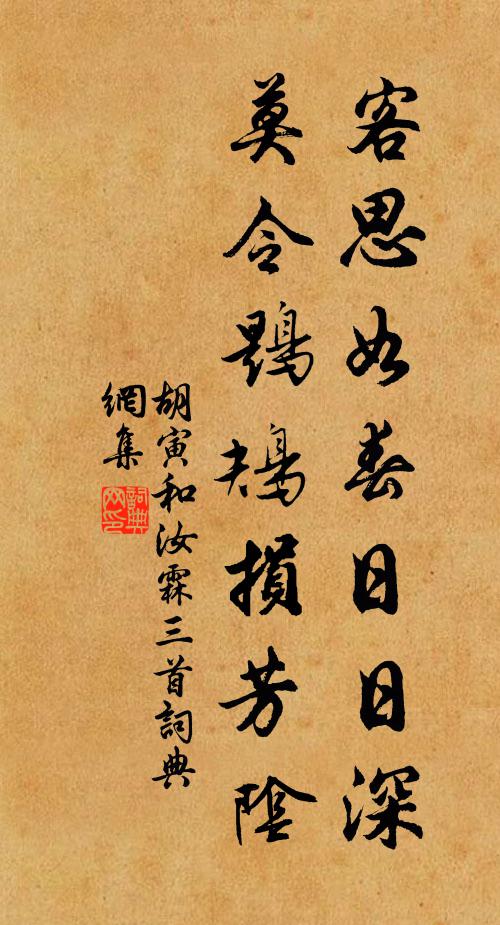 客思如春日日深
莫令鶗鴂損芳陰
胡寅和汝霖三首詞典
網集
詞典网印